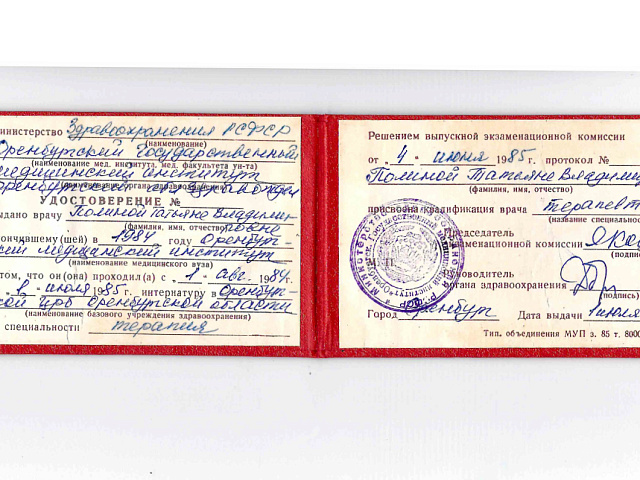 Министерство Здравоохранения РСФСР
(наименование)
Оренбургский Государственный
(наименование мед. института, мед. факультета ун-та)
медицинский институт
(наименование органа здравоохранения)
УДОСТОВЕРЕНИЕ №
Выдано врачу Полиной Татьяне Владимир-
(фамилия, имя, отчество)
окончившему(шей) в 1984 году Оренбург-
ский медицинский институт
том, что он(она) проходил(а) с 1 авг. 1984г.
1 июля 1985г. интернатуру в Оренбург-
ской црб Оренбургской области
(наименование базового учреждения здравоохранения)
специальности терапия
Решением выпускной экзаменационной комиссии
от 4 июня 1985г. протокол №
Полиной Татьяне Владимир
(фамилия, имя, отчество)
присвоена квалификация врача терапевт
(название специальнос
Председатель
экзаменационной комиссии
(подпис
Руководитель
органа здравоохранения
(подпись
Город Оренбург Дата выдачи 1 июля
Тип. объединения МУП з. 85 т. 8000